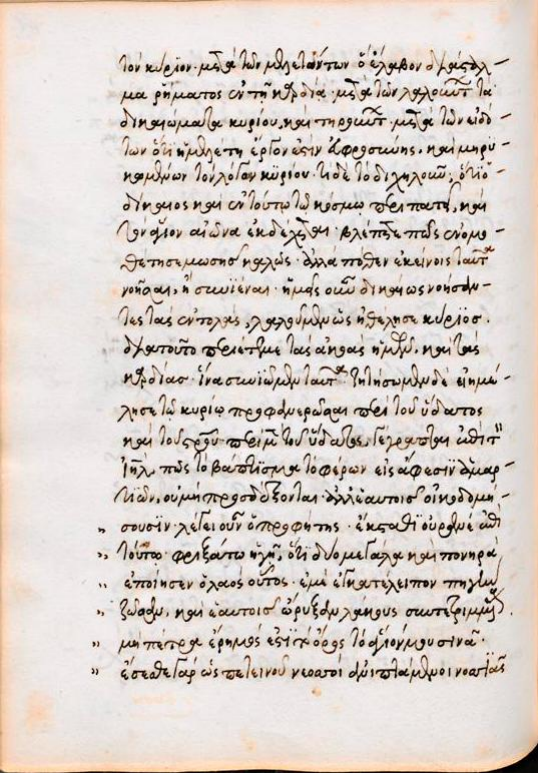 τὸν κύριον· μετὰ τῶν μελετώντων ὃ ἔλαβον διάσταλ-
μα ῥήματος ἐν τῇ καρδίᾳ· μετὰ τῶν λαλούντων τὰ
δικαιώματα κυρίου, καὶ τηρούντων· μετὰ τῶν εἰδό-
των ὅτι ἡ μελέτη ἔργον ἐστὶν εὐφροσύνης, καὶ μηρυ-
κωμένων τὸν λόγον κυρίου· τί δὲ τὸ διχηλοῦν; ὅτι ὁ
δίκαιος καὶ ἐν τούτῳ τῷ κόσμῳ περιπατεῖ, καὶ
τὸν ἅγιον αἰῶνα ἐκδέχεται· βλέπετε πῶς ἐνομο-
θέτησε μωσῆς καλῶς· ἀλλὰ πόθεν ἐκείνοις ταῦτα
νοῆσαι, ἢ συνϊέναι· ἡμεῖς οὖν δικαίως νοήσαν-
τες τὰς ἐντολάς, λαλοῦμεν ὡς ἠθέλησε κύριος.
διατοῦτο περιέτεμε τὰς ἀκοὰς ἡμῶν, καὶ τὰς
καρδίας· ἵνα συνϊῶμεν ταῦτα· ζητήσωμεν δὲ εἰ ἐμέ-
λησε τῷ κυρίῳ προφανερῶσαι περὶ τοῦ ὕδατος
καὶ τοῦ σταυροῦ· περὶ μὲν τοῦ ὕδατος, γέγραπται ἐπὶ τὸν
ἰσραήλ, πῶς τὸ βάπτισμα τὸ φέρων εἰς ἄφεσιν ἁμαρ-
τιῶν, οὐ μὴ προσδέξονται· ἀλλ' ἑαυτοῖς οἰκοδομή-
σουσϊν· λέγει οὖν ὁ προφήτης· ἔκσταθι οὐρανέ ἐπὶ
τούτῳ· φριξάτω ἡ γῆ, ὅτι δύο μεγάλα καὶ πονηρὰ
ἐποίησεν ὁ λαὸς οὗτος· ἐμὲ ἐγκατέλειπον πηγὴν
ζῶσαν, καὶ ἑαυτοῖς ὤρυξαν λάκκους συντετριμμένους.
μὴ πέτρα ἔρημός ἐστι τὸ ὄρος τὸ ἅγιόν μου σινᾶ·
ἔσεσθε γὰρ ὡς πετεινοῦ νεοσσοὶ ἀνιπτάμενοι νοσσιᾶς